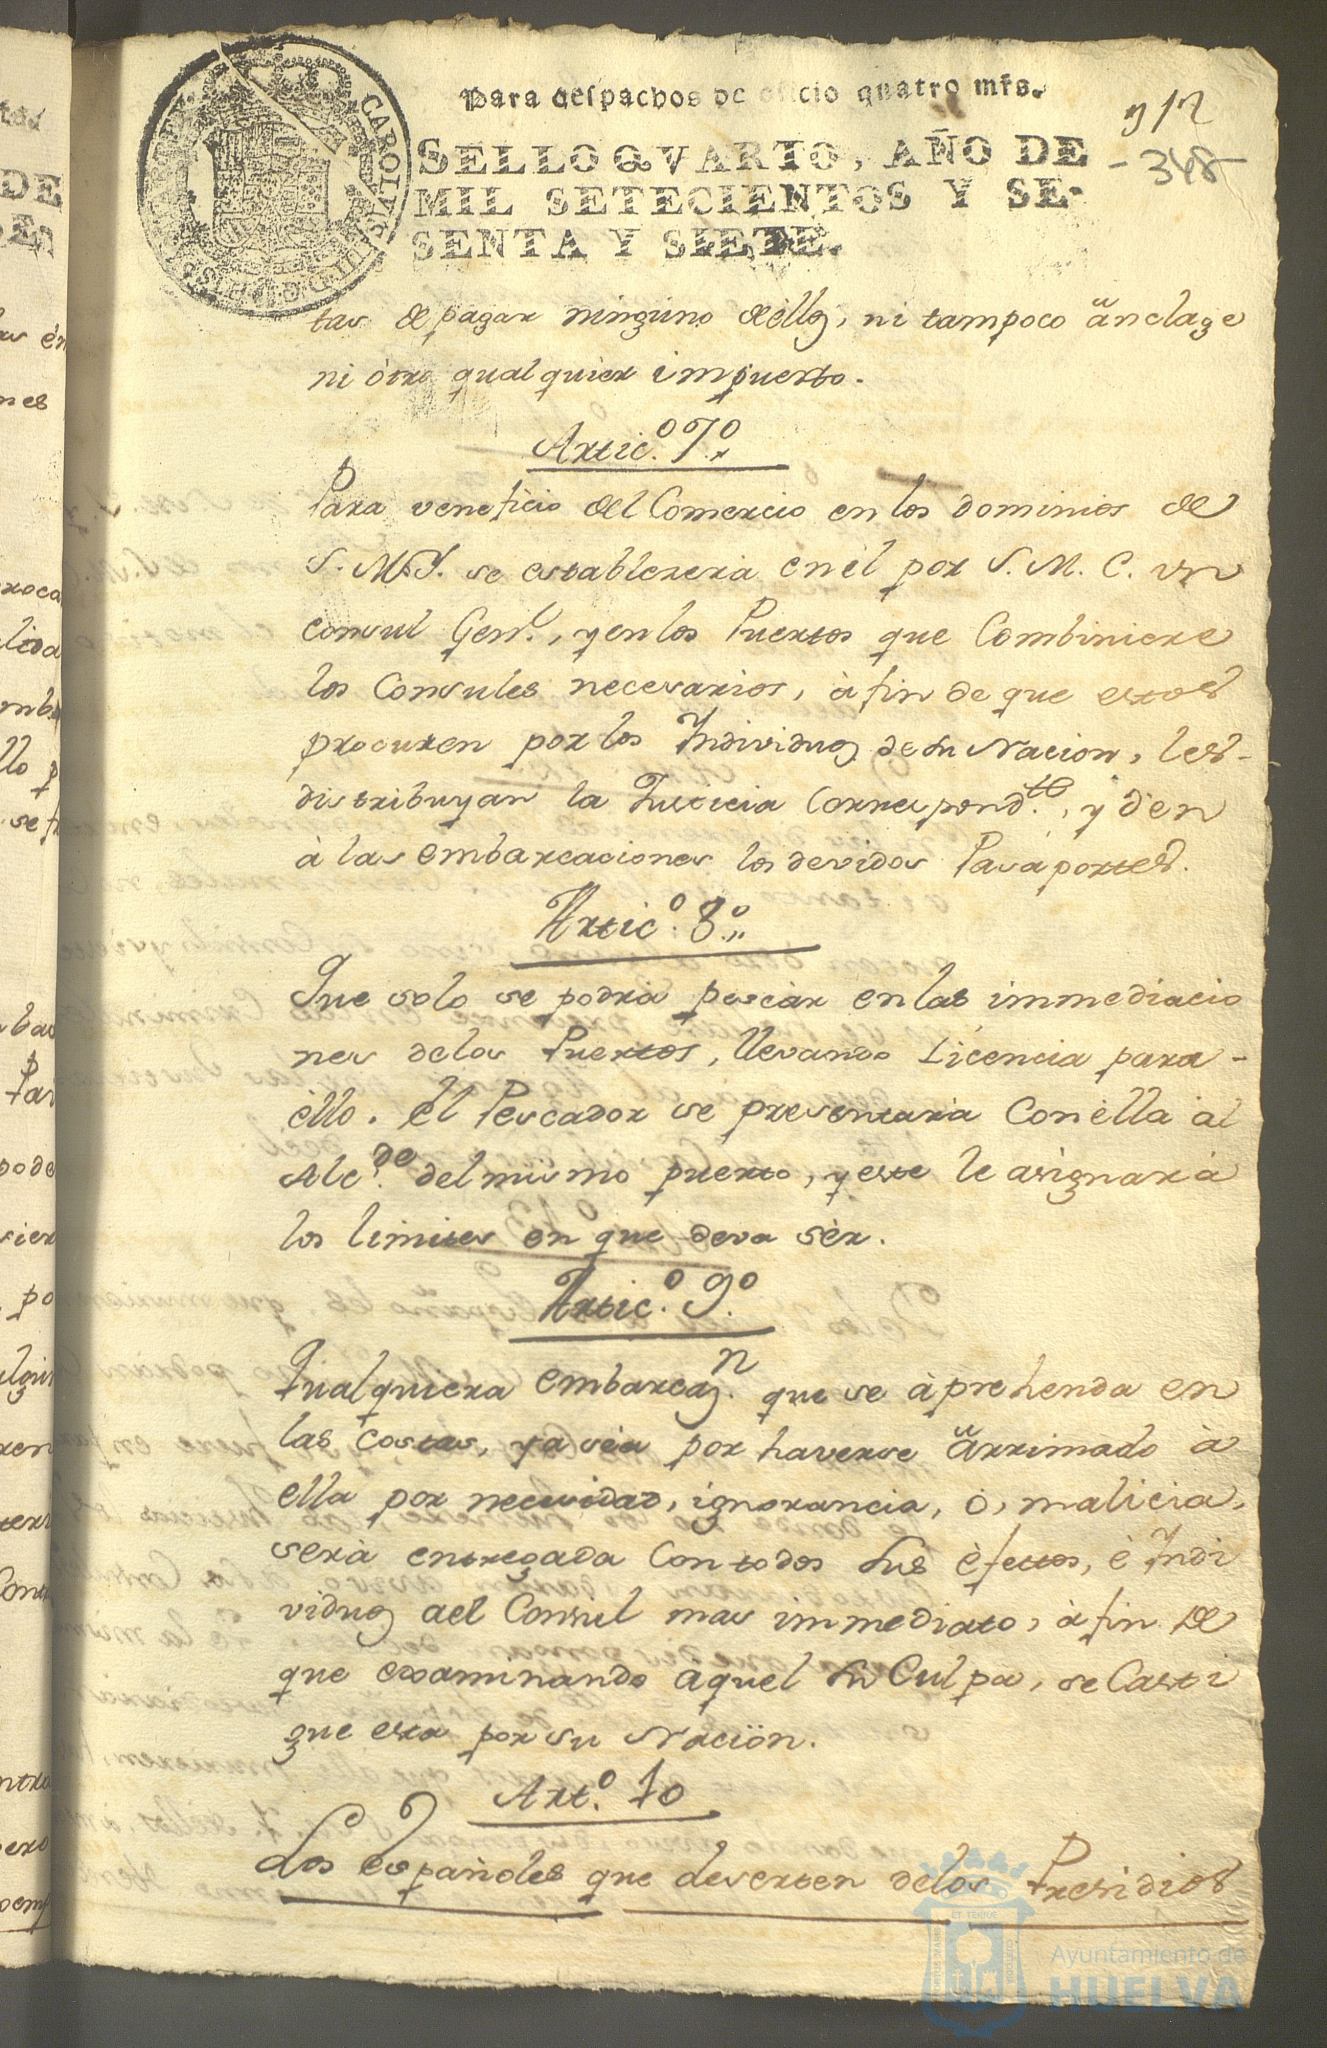 Para despachos de oficio quatro mrs.
SELLO QVARTO, AÑO DE
MIL SETECIENTOS Y SE-
SENTA Y SIETE.
CAROLVS III D G
312
-348-
tas de pagar ninguno dellos, ni tampoco anclage
ni òtro qualquier impuesto.
Artic.º 7º
Para veneficio del Comercio en los dominios de
S. M. I. se establezerà en èl por S. M. C. un
Consul Genl., y en los Puertos que Combiniere
los Consules necesarios, à fin de que estos
procuren por los Individuos de su Nacion, les
distribuyan la Justicia Correspondte., y dèn
à las embarcaciones los devidos Pasaportes.
Artic.º 8º
Que solo se podrà pescàr en las immediacio
nes de los Puertos, llevando Licencia para
èllo. èl Pescador se presentarà Con èlla àl
Alcde. del mismo puerto, y este le asignarà
los limites en que deva sèr.
Artic.º 9º
Qualquiera embarcazn. que se àprehenda en
las costas, ya sèa por haverse arrimado à
ella por necesidad, ignorancia, ò, malicia,
serà entregada Con todos sus èfectos, è Indi
viduos àel Consul mas immediato, à fin de
que examinando aquel su Culpa, se Casti
gue esta por su Naciòn.
Art.º 10
Los españoles que deserten de los Presidios
Ayuntamiento de
HUELVA